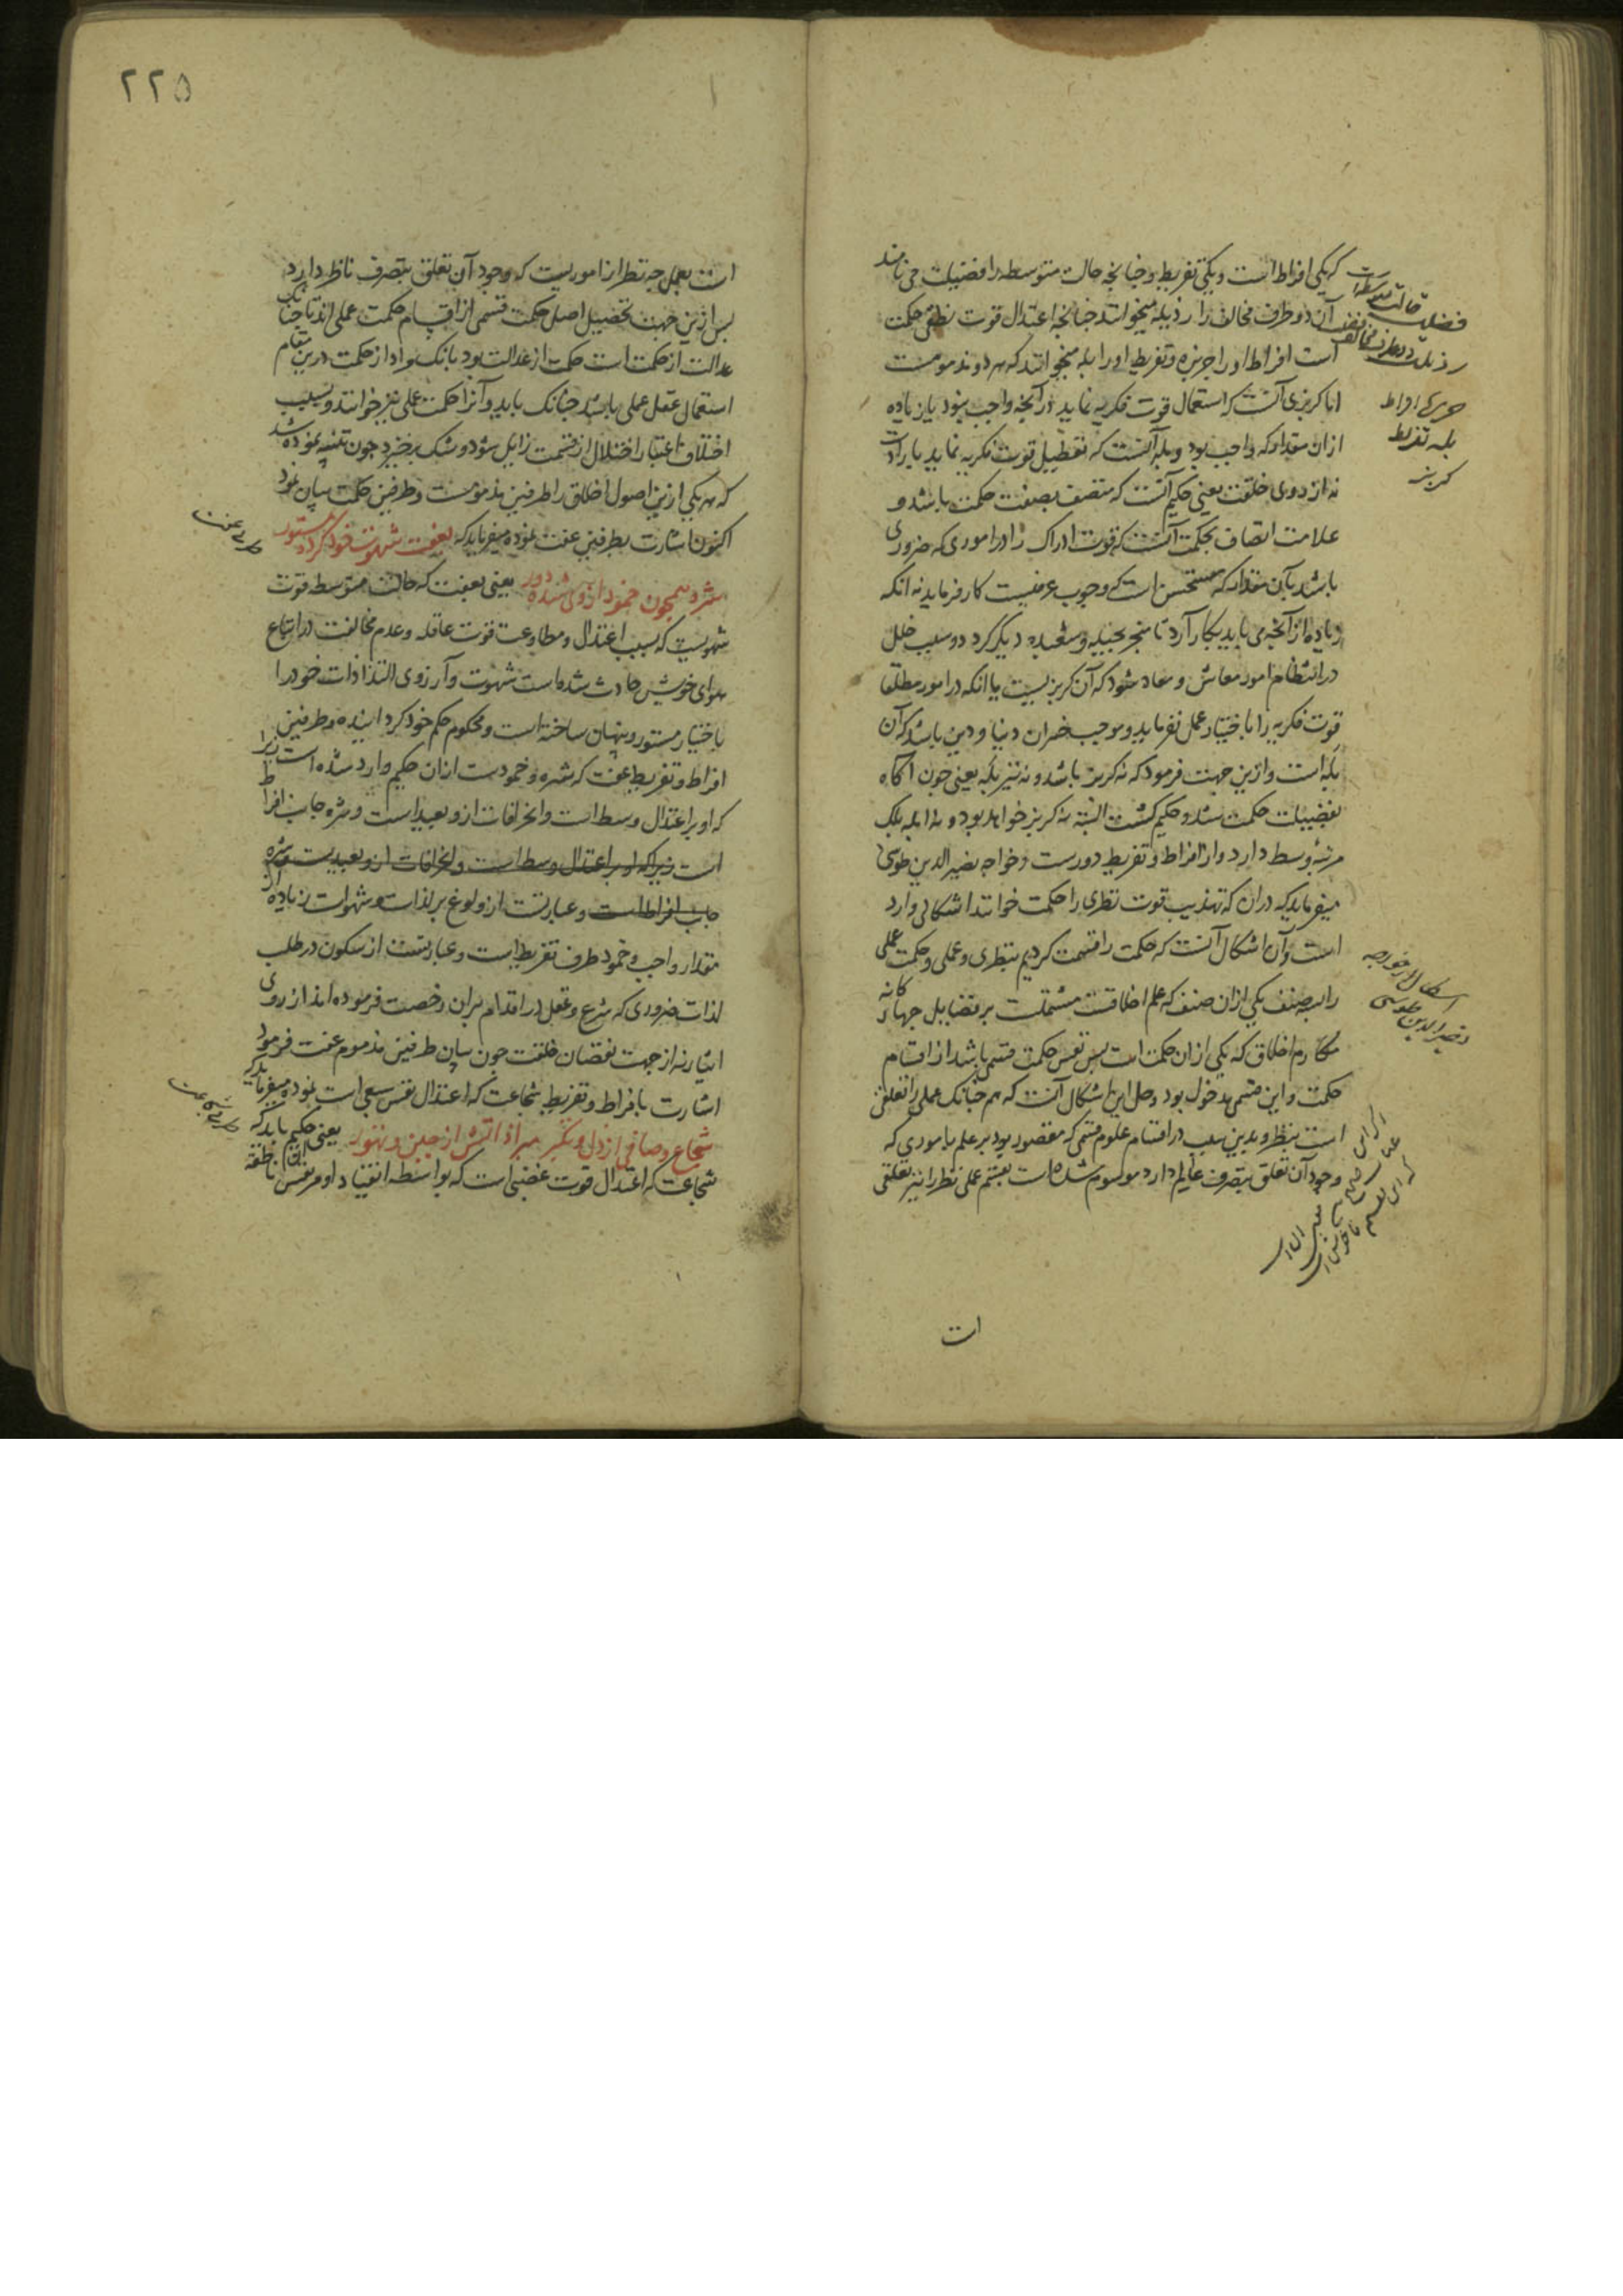 که یکی افراط است و یکی تفریط و چنانچه حالت متوسطه را فضیلت می نامند
آن دو طرف مخالف را رذیله میخوانند چنانچه اعتدال قوت نطقی حکمت
است افراط او را جربزه و تفریط او را بله میخوانند که هر دو مذمومست
اما کربزی آنست که استعمال قوت فکریه نماید در آنچه واجب نبود یا زیاده
ازان مقدار که واجب بود و بله آنست که تعطیل قوت فکریه نماید بارادت
نه از روی خلقت یعنی حکیم آنست که متصف بصفت حکمت باشد و
علامت اتصاف بحکمت آنست که قوت ادراک را در اموری که ضروری
باشد بآن مقدار که مستحسن است که وجوب عرفیست کار فرماید نه آنکه
زیاده از آنچه می باید بکار آرد تا منجر بحیله و شعبده دیگر کردد و سبب خلل
در انتظام امور معاش و معاد شود که آن کربزیست یا آنکه در امور مطلقا
قوت فکریه را باختیار عمل نفرماید و موجب خسران دنیا و دین باشد که آن
بله است و ازین جهت فرمود که نه کربز باشد و نه نیز بله یعنی چون آگاه
بفضیلت حکمت شد و حکیم کشت البته نه کربز خواهد بود و نه ابله بلکه
مرتبه وسط دارد و از افراط و تفریط دورست و خواجه نصیر الدین طوسی
میفرماید که دران که تهذیب قوت نظری را حکمت خوانند اشکالی وارد
است و آن اشکال آنست که حکمت را قسمت کردیم بنظری و عملی و حکمت عملی
را بسه صنف یکی ازان صنف که علم اخلاقست مشتملست بر فضایل چهارگانه
مکارم اخلاق که یکی ازان حکمت است پس نفس حکمت قسمی باشد از اقسام
حکمت و این قسمی مدخول بود و حل این اشکال آنست که هم چنانک عملی را تعلقی
است بنظر و بدین سبب در اقسام علوم قسمی که مقصور بود بر علم باموری که
وجود آن تعلق بتصرف عالم دارد موسوم شده است بقسم عملی نظر را نیز تعلقی
فضیلت حالت متوسط است
رذیلت دو طرف مخالف
جربزکی افراط
بله تفریط
کربز
اشکال خواجه
نصیر الدین طوسی
ات
۲۲۵
است بعمل چه نظر از اموریست که وجود آن تعلق بتصرف ناظر دارد
پس ازین جهت تحصیل اصل حکمت قسمی از اقسام حکمت عملی اند تا چنانک
عدالت از حکمت است حکمت از عدالت بود بانک مراد از حکمت درین مقام
استعمال عقل عملی باشد چنانک باید و آنرا حکمت عملی نیز خوانند و بسبب
اختلاف اعتبار اختلال از قسمت زایل شود و شک برخیزد چون تنبیه نموده شد
که هر یکی ازین اصول اخلاق را طرفین مذمومست و طرفین حکمت بیان نمود
اکنون اشارت بطرفین عفت نموده میفرماید که بعفت شهوت خود کرده مستور
شره همچون خمود از وی شده دور یعنی بعفت که حالت متوسط قوت
شهویست که بسبب اعتدال و مطاوعت قوت عاقله و عدم مخالفت در اتباع
هوای خویش حادث شده است شهوت و آرزوی التذاذات خود را
باختیار مستور و پنهان ساخته است و محکوم حکم خود کردانیده و طرفین
افراط و تفریط عفت که شره و خمودست ازان حکیم وارد شده است زیرا
که او بر اعتدال وسط است و انحرافات ازو بعید است و شره جانب افراط
است زیرا که او بر اعتدال وسط است و انحرافات ازو بعیدست و شره
جانب افراط است و عبارتست از ولوغ بر لذات و شهوات زیاده از
مقدار واجب و خمود طرف تفریط است و عبارتست از سکون در طلب
لذات ضروری که شرع و عقل در اقدام بران رخصت فرموده اند از روی
ایثار نه از جهت نقصان خلقت چون بیان طرفین مذموم عفت فرمود
اشارت بافراط و تفریط شجاعت که اعتدال نفس سبعی است نموده میفرماید که
شجاع و صافی از ذل و تکبر مبرا ذاتش از جبن و تهور یعنی حکیم باید که
شجاعت که اعتدال قوت غضبی است که بواسطه انقیاد او مر نفس ناطقه
طرفی عفت
طرفی شجاعت